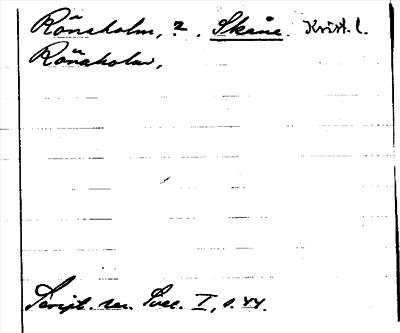 Rönaholm, ?. Skåne. Krist. l.
Rönaholm,
Script. rer. Svec. I, s. 44.